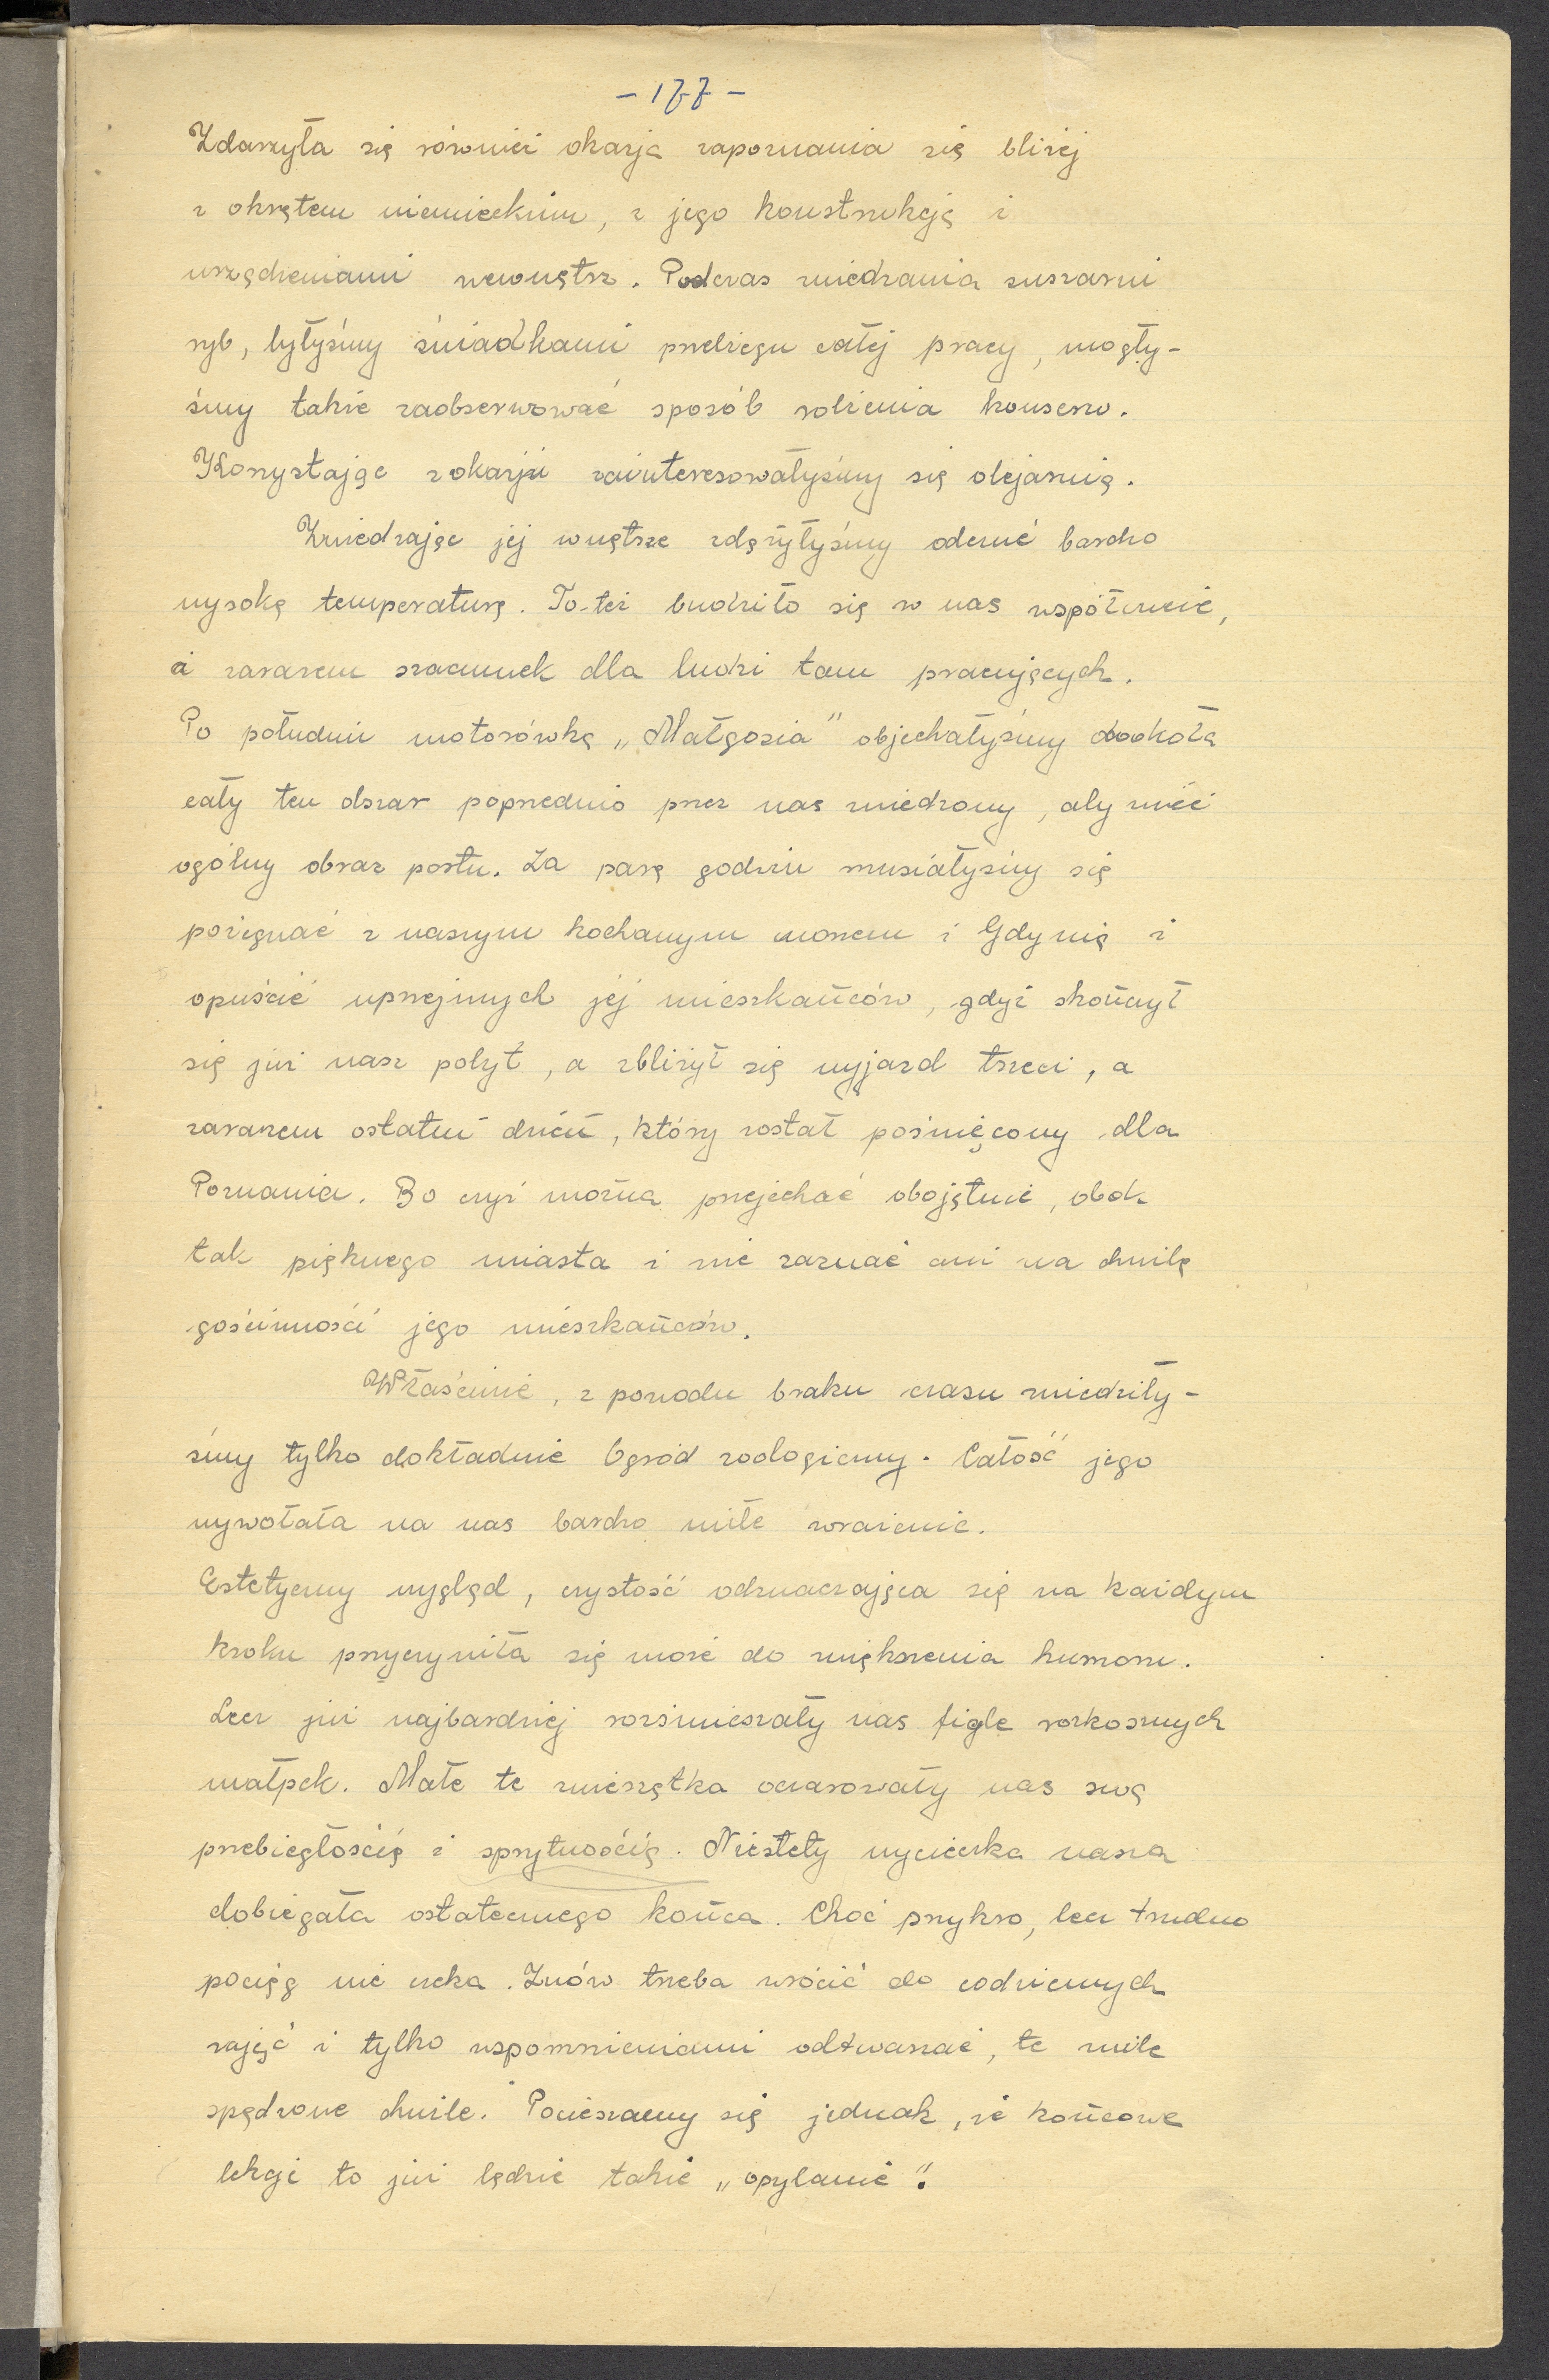 - 177 -
Zdarzyła się również okazja zapoznania się bliżej
z okrętem niemieckim, z jego konstrukcją i
urządzeniami wewnątrz. Podczas zwiedzania suszarni
ryb, byłyśmy świadkami przebiegu całej pracy, mogły-
śmy także zaobserwować sposób robienia konserw.
Korzystając z okazji zainteresowałyśmy się olejarnią.
Zwiedzając jej wnętrze zdążyłyśmy odczuć bardzo
wysoką temperaturę. To-też budziło się w nas współczucie,
a zarazem szacunek dla ludzi tam pracujących.
Po południu motorówką „Małgosia" objechałyśmy dookoła
cały ten obszar poprzednio przez nas zwiedzony, aby mieć
ogólny obraz portu. Za parę godzin musiałyśmy się
pożegnać z naszym kochanym morzem i Gdynią i
opuścić uprzejmych jej mieszkańców, gdyż skończył
się już nasz pobyt, a zbliżył się wyjazd trzeci, a
zarazem ostatni dzień, który został poświęcony dla
Poznania. Bo czyż można przejechać obojętnie, obok
tak pięknego miasta i nie zaznać ani na chwilę
gościnności jego mieszkańców.
Właściwie, z powodu braku czasu zwiedziły-
śmy tylko dokładnie Ogród zoologiczny. Całość jego
wywołała na nas bardzo miłe wrażenie.
Estetyczny wygląd, czystość odznaczająca się na każdym
kroku przyczyniła się może do zwiększenia humoru.
Lecz już najbardziej rozśmieszały nas figle rozkosznych
małpek. Małe te zwierzątka oczarowały nas swą
przebiegłością i sprytnością. Niestety wycieczka nasza
dobiegała ostatecznego końca. Choć przykro, lecz trudno
pociąg nie czeka. Znów trzeba wrócić do codziennych
zajęć i tylko wspomnieniami odtwarzać, te mile
spędzone chwile. Pocieszamy się jednak, że końcowe
lekcje to już będzie takie „opylanie".